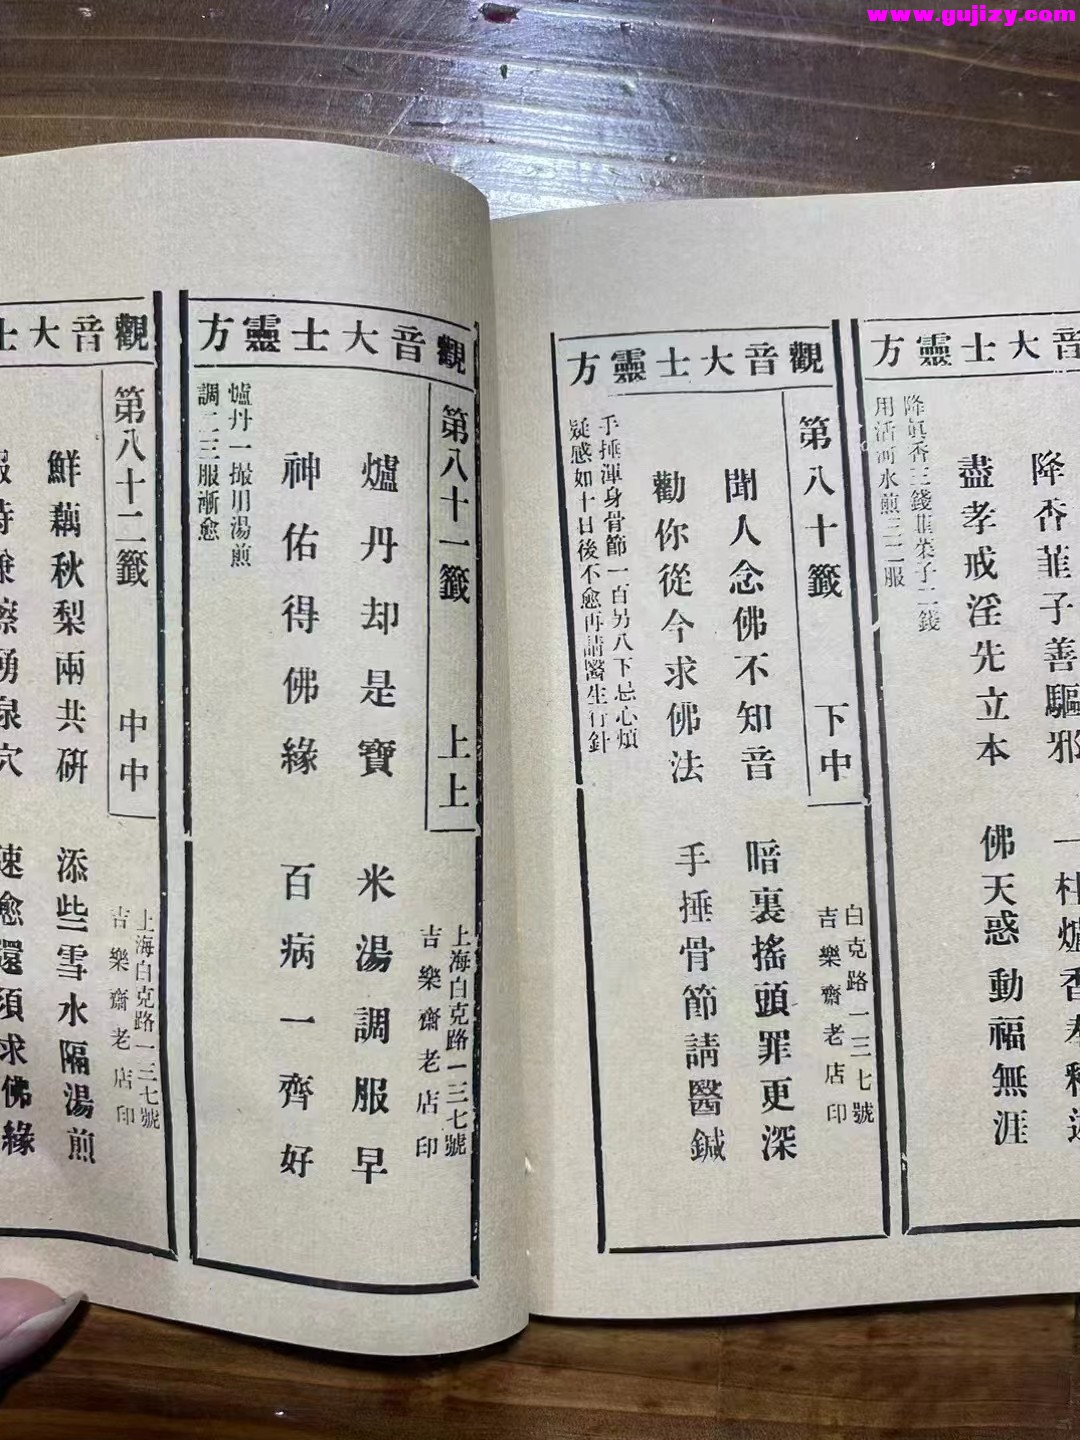 www.gujizy.com
音大士靈方
降香菲子善驅邪
一柱爐香奉釋迦
盡孝戒淫先立本
佛天惑動福無涯
降眞香三錢韮菜子二錢
用活河水煎三二服
觀音大士靈方
第八十籤
下中
白克路一三七號
吉樂齋老店印
聞人念佛不知音
暗裏搖頭罪更深
勸你從今求佛法
手捶骨節請醫鍼
手捶渾身骨節一百另八下忌心煩
疑惑如十日後不愈再請醫生行針
觀音大士靈方
第八十一籤
上上
上海白克路一三七號
吉樂齋老店印
爐丹却是寶
米湯調服早
神佑得佛緣
百病一齊好
爐丹一撮用湯煎
調二三服漸愈
觀音大士
第八十二籤
中中
上海白克路一三七號
吉樂齋老店印
鮮藕秋梨兩共研
添些雪水隔湯煎
擦湧泉穴
速愈還須求佛緣